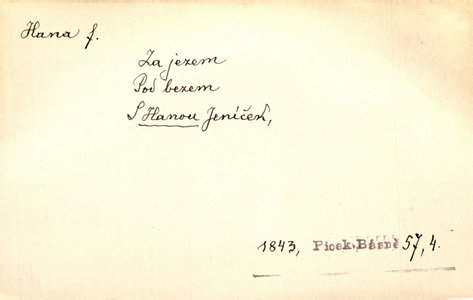 Hana f.
Za jezem
Pod bezem
S Hanou Jeníček,
1843, Picek, Básně 57, 4.